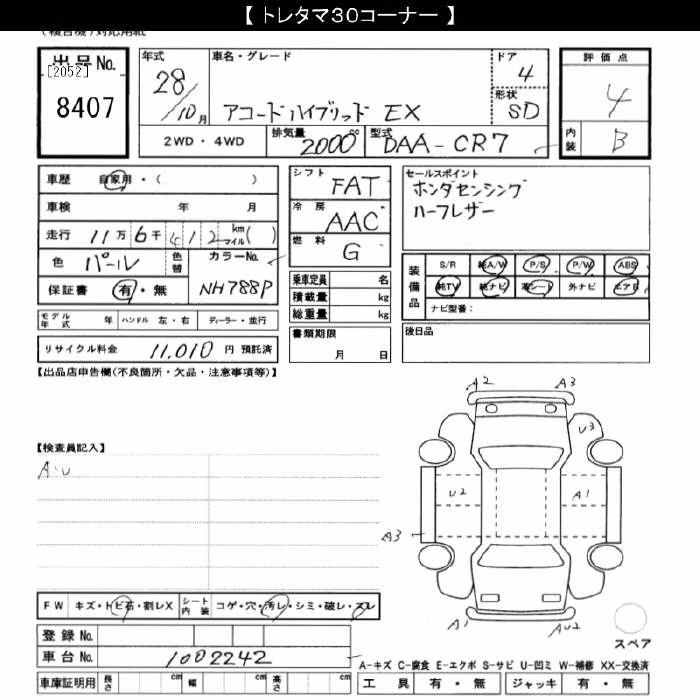 【 トレタマ30コーナー 】
(複合機)対応用紙
出品No.
[2052]
8407
年式
28
10月
車名・グレード
アコードハイブリッド EX
ドア
4
形状
SD
評価点
4
内装
B
2WD・4WD
排気量
2000 cc
型式
DAA-CR7
車歴 自家用・( )
車検 年 月
走行 11万 6千 412 km マイル( )
色 パール
色替
カラーNo.
NH788P
保証書 有・無
シフト
FAT
冷房
AAC
燃料
G
乗車定員 名
積載量 kg
総重量 kg
セールスポイント
ホンダセンシング
ハーフレザー
装備品
S/R 純A/W P/S P/W ABS
純TV 純ナビ 革シート 外ナビ エアB
ナビ型番：
モデル年式 年 ハンドル 左・右 ディーラー・並行
リサイクル料金 11,010 円 預託済
書類期限
月 日
後日品
【出品店申告欄(不良箇所・欠品・注意事項等)】
【検査員記入】
A・U
A2 A3
U3
U2 A1
A3
A1 AU2
スペア
FW キズ・トビ石・割レX
シート内装 コゲ・穴・汚レ・シミ・破レ・スレ
登録No.
車台No. 1002242
A-キズ C-腐食 E-エクボ S-サビ U-凹ミ W-補修 XX-交換済
車庫証明用 長さ cm 幅 cm 高さ cm
工具 有・無 ジャッキ 有・無